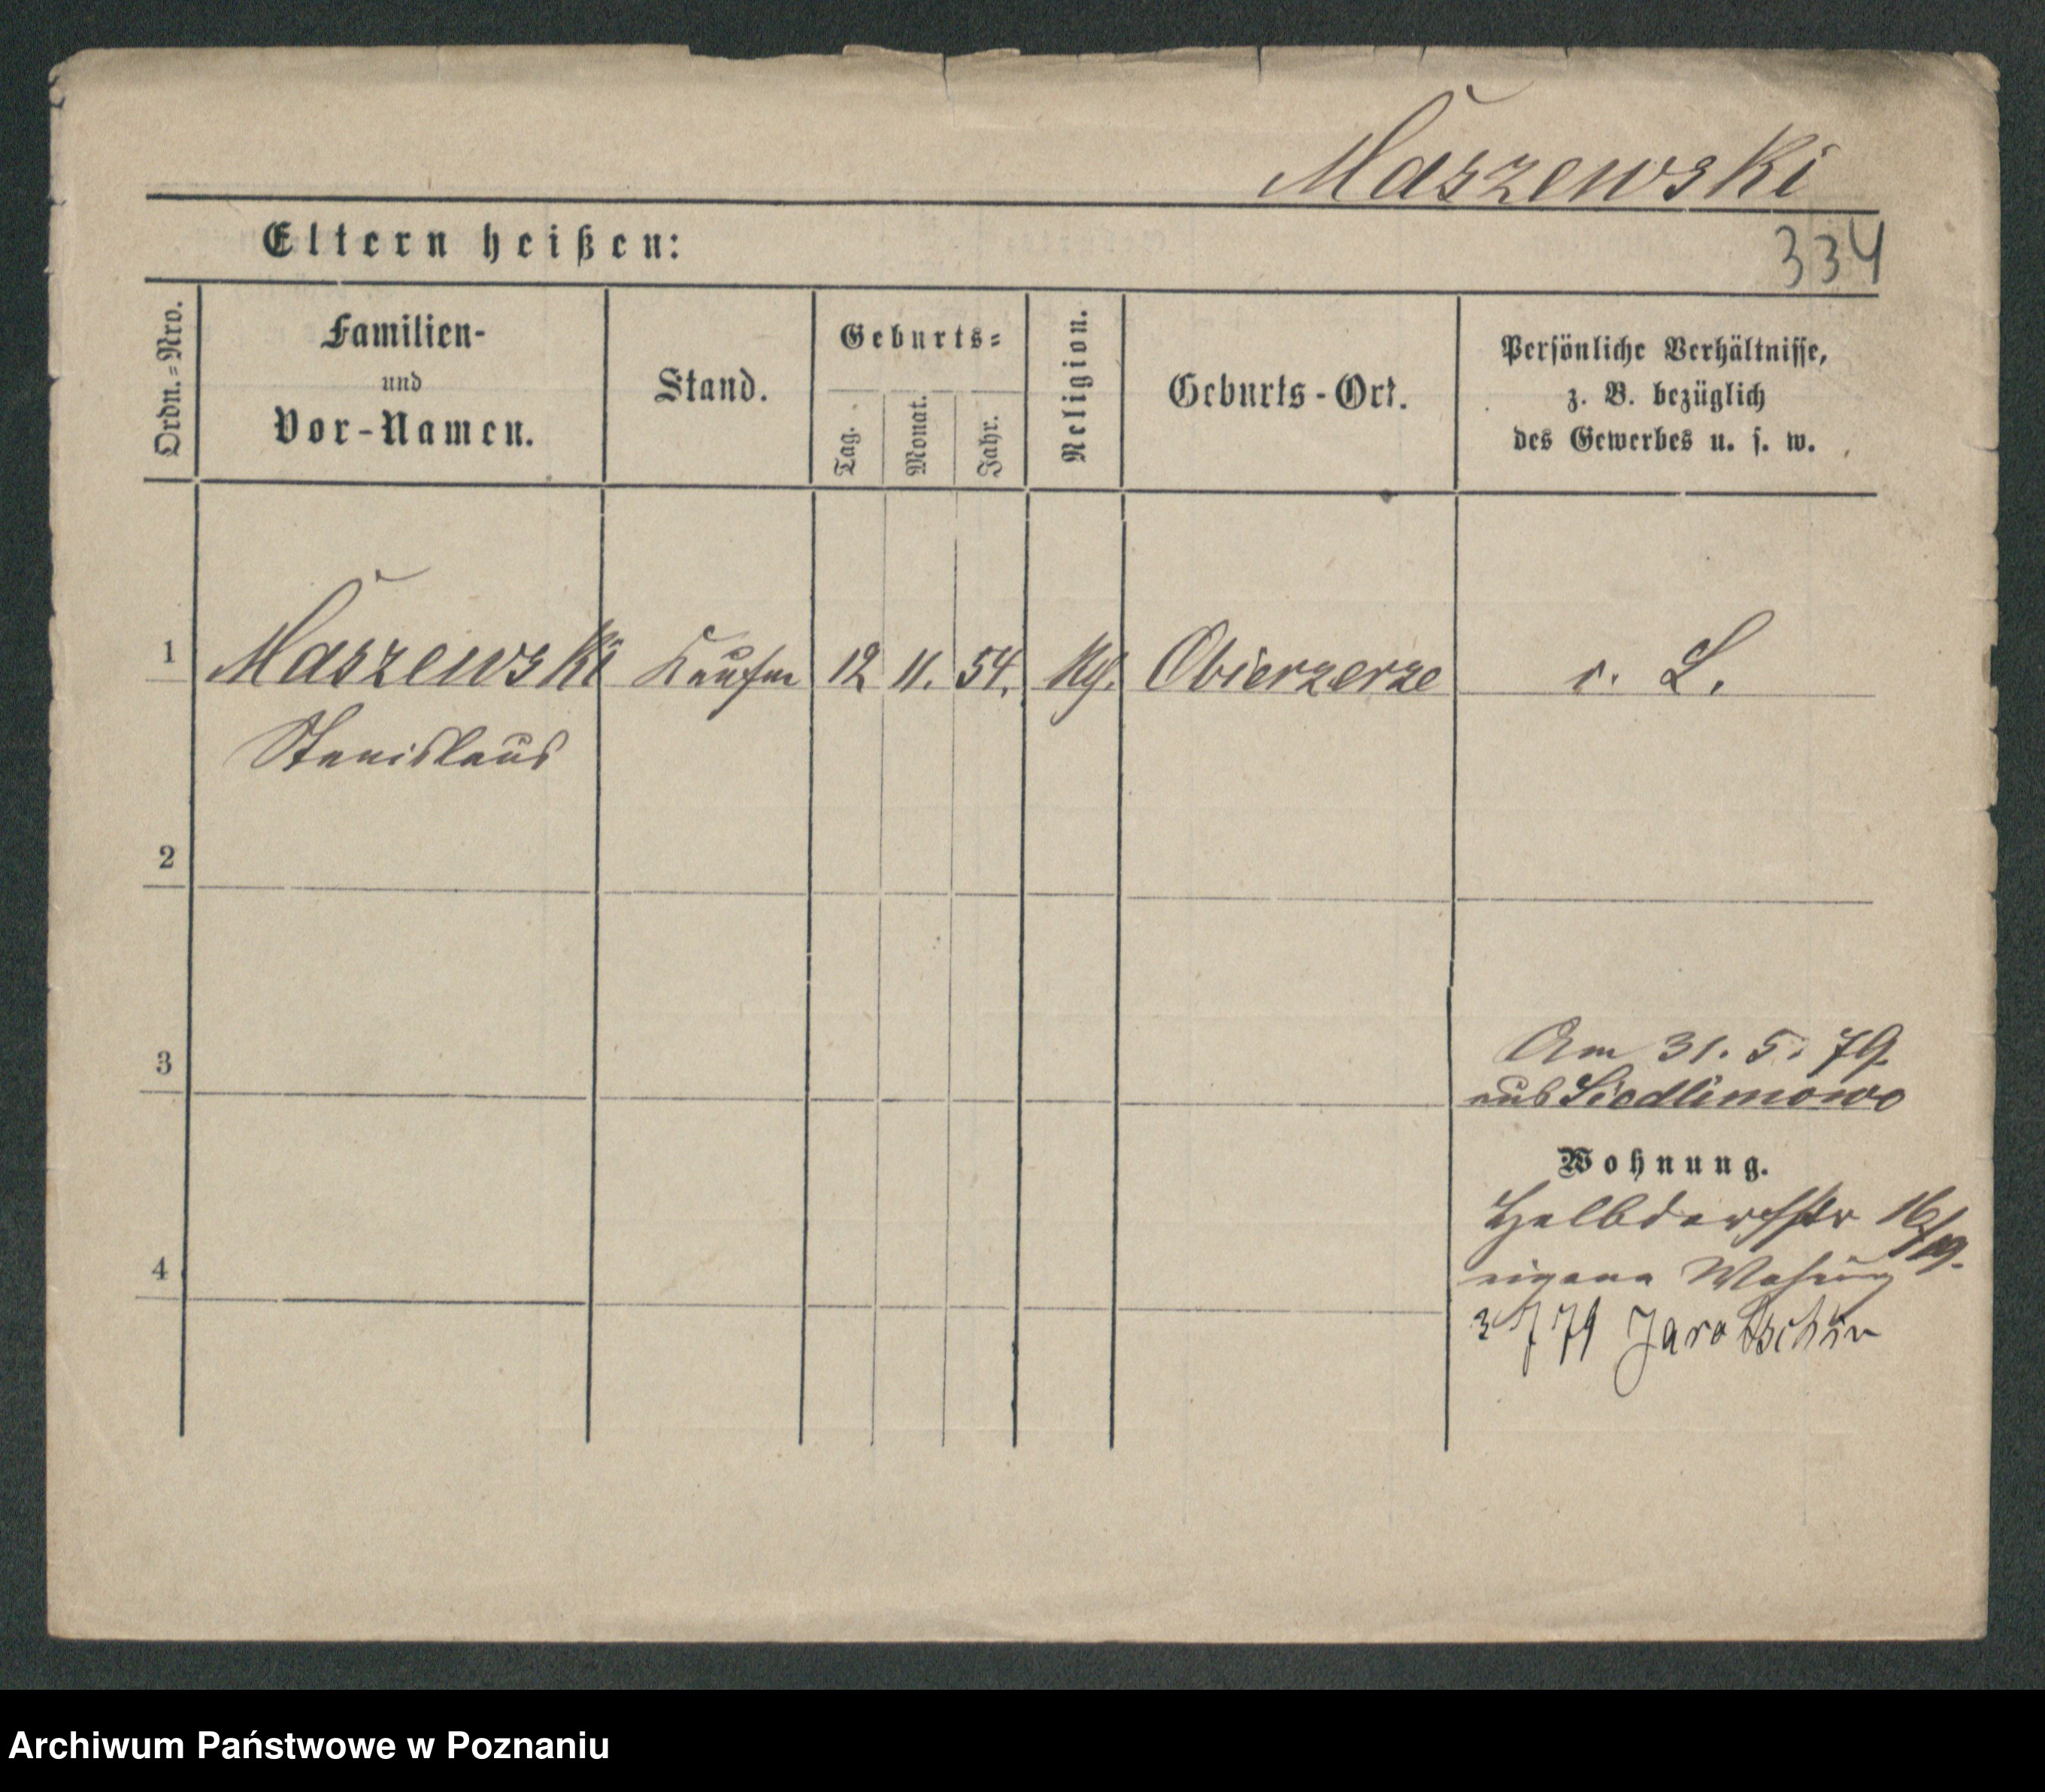 Maszewski
334
Eltern heißen:
Ordn.=Nro.
Familien-
und
Vor-Namen.
Stand.
Geburts=
Tag.
Monat.
Jahr.
Religion.
Geburts-Ort.
Persönliche Verhältnisse,
z. B. bezüglich
des Gewerbes u. s. w.
1 Maszewski Kaufm 12 11. 54. Obierzerze L.
Stanislaus
2
3
Am 31. 5. 79.
aus Siedlimowo
Wohnung.
Halbdorfstr 16/19.
eigene Wohnung
4
3 7 79 Jarotschin
Archiwum Państwowe w Poznaniu